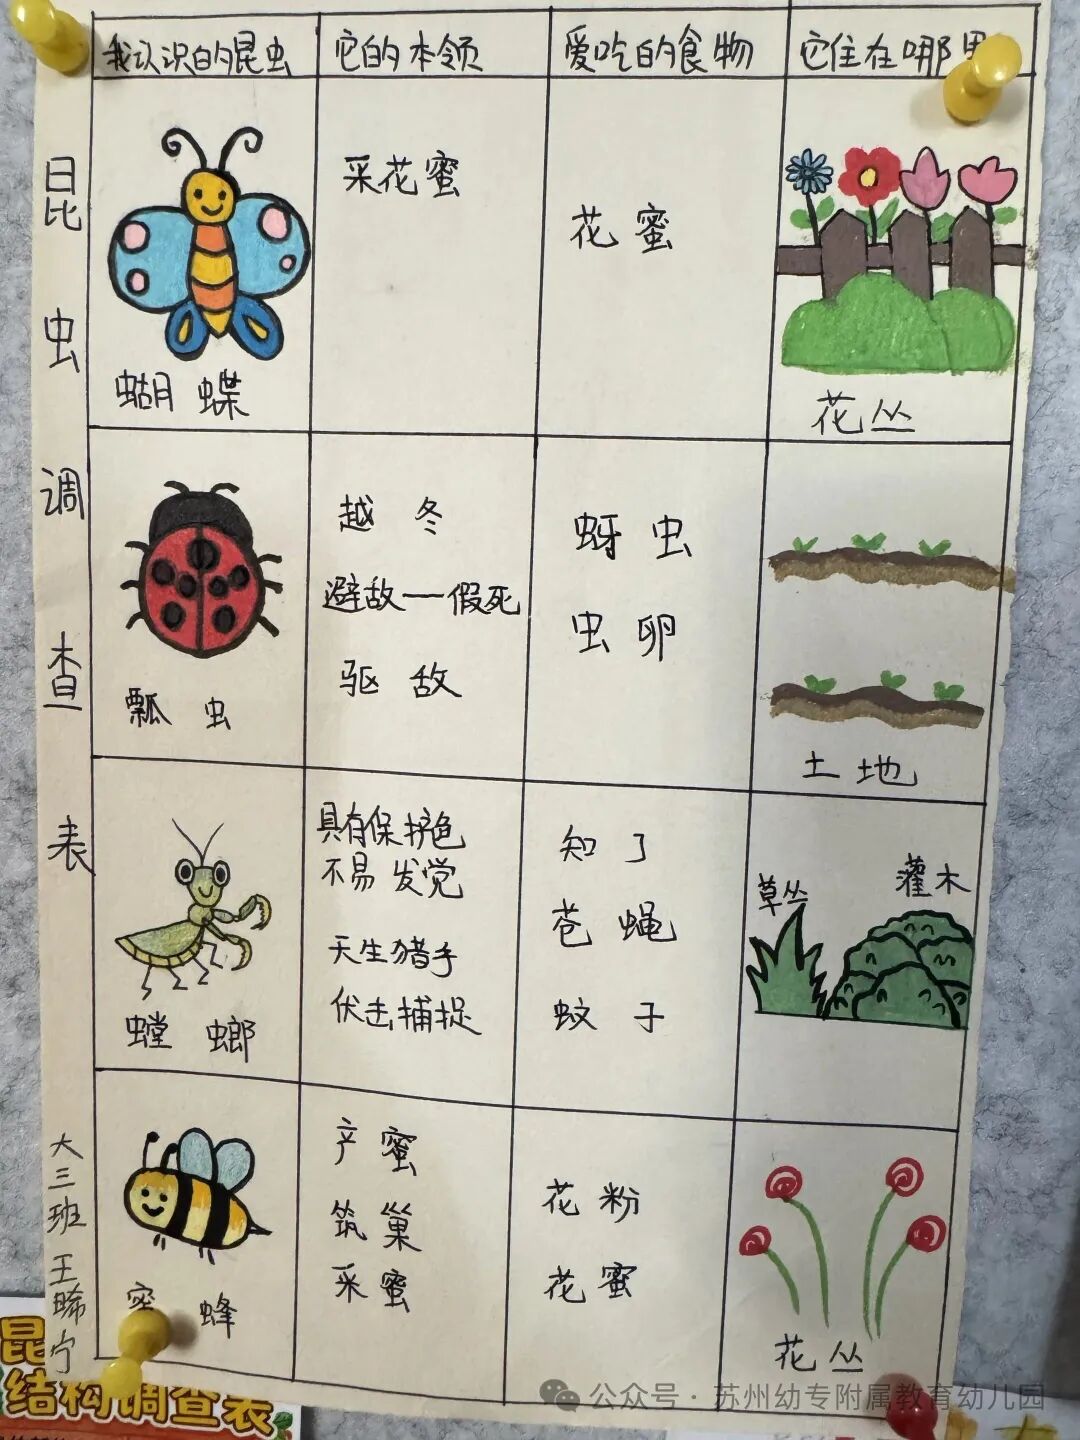 昆虫调查表
大三班 王晞宁
我认识的昆虫
它的本领
爱吃的食物
它住在哪里
蝴蝶
采花蜜
花蜜
花丛
瓢虫
越冬
避敌——假死
驱敌
蚜虫
虫卵
土地
螳螂
具有保护色
不易发觉
天生猎手
伏击捕捉
知了
苍蝇
蚊子
草丛
灌木
蜜蜂
产蜜
筑巢
采蜜
花粉
花蜜
花丛
昆
结构调查表
公众号·苏州幼专附属教育幼儿园